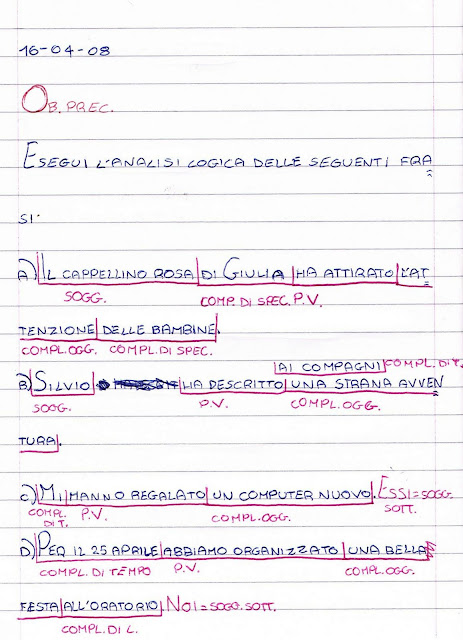 16-04-08
OB. PREC.
ESEGUI L'ANALISI LOGICA DELLE SEGUENTI FRA
SI:
A) IL CAPPELLINO ROSA DI GIULIA HA ATTIRATO L'AT
SOGG. COMP. DI SPEC. P.V.
TENZIONE DELLE BAMBINE.
COMPL. OGG. COMPL. DI SPEC.
AI COMPAGNI COMPL. DI T.
B) SILVIO HA DESCRITTO UNA STRANA AVVEN
SOGG. P.V. COMPL. OGG.
TURA.
C) MI HANNO REGALATO UN COMPUTER NUOVO. ESSI = SOGG.
COMPL. DI T. P.V. COMPL. OGG. SOTT.
D) PER IL 25 APRILE ABBIAMO ORGANIZZATO UNA BELLA
COMPL. DI TEMPO P.V. COMPL. OGG.
FESTA ALL'ORATORIO. NOI = SOGG. SOTT.
COMPL. DI L.